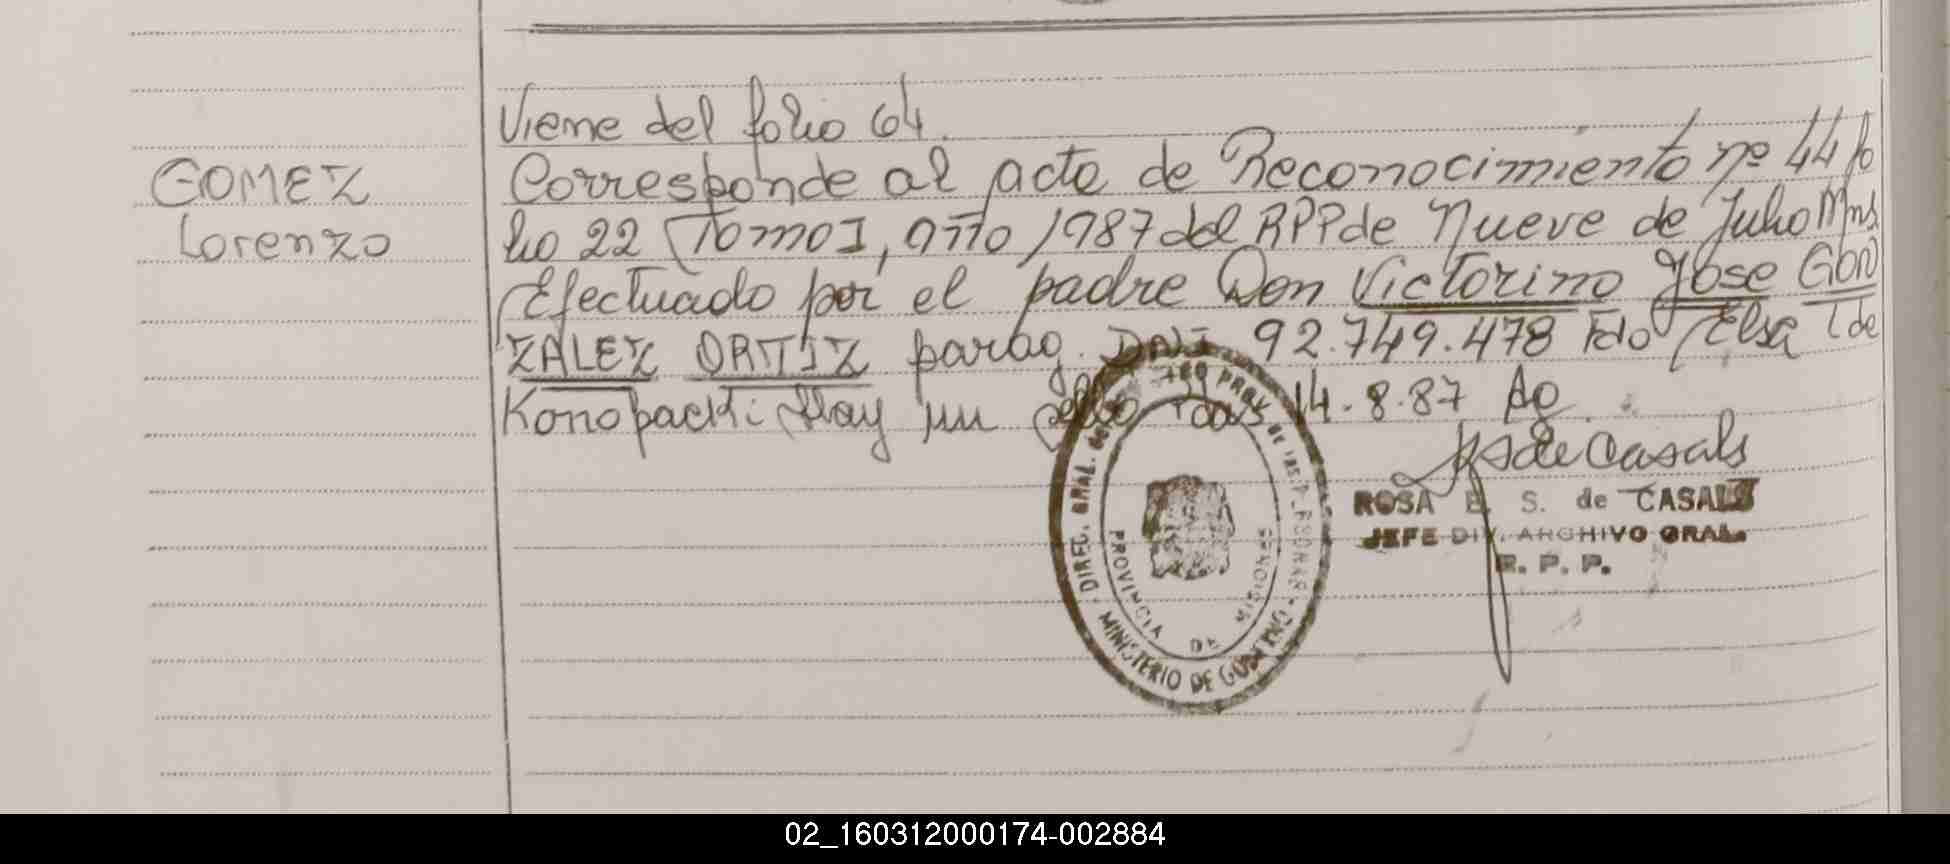 Viene del folio 64.
GOMEZ
Lorenzo
Corresponde al acta de Reconocimiento nº 44 fo
lio 22 Tomo I, año 1987 del RPP de Nueve de Julio Mns
Efectuado por el padre Don Victorino Jose GON
ZALEZ ORTIZ parag. DNI 92.749.478 Fdo Elsa I de
Konopacki Hay un sello Pdas 14.8.87 Ao
RSdeCasals
ROSA E. S. de CASALS
JEFE DIV. ARCHIVO GRAL.
R. P. P.
DIREC. GRAL. DE PROV. DE LAS PERSONAS
MINISTERIO DE GOBIERNO
PROVINCIA DE MISIONES
02_160312000174-002884